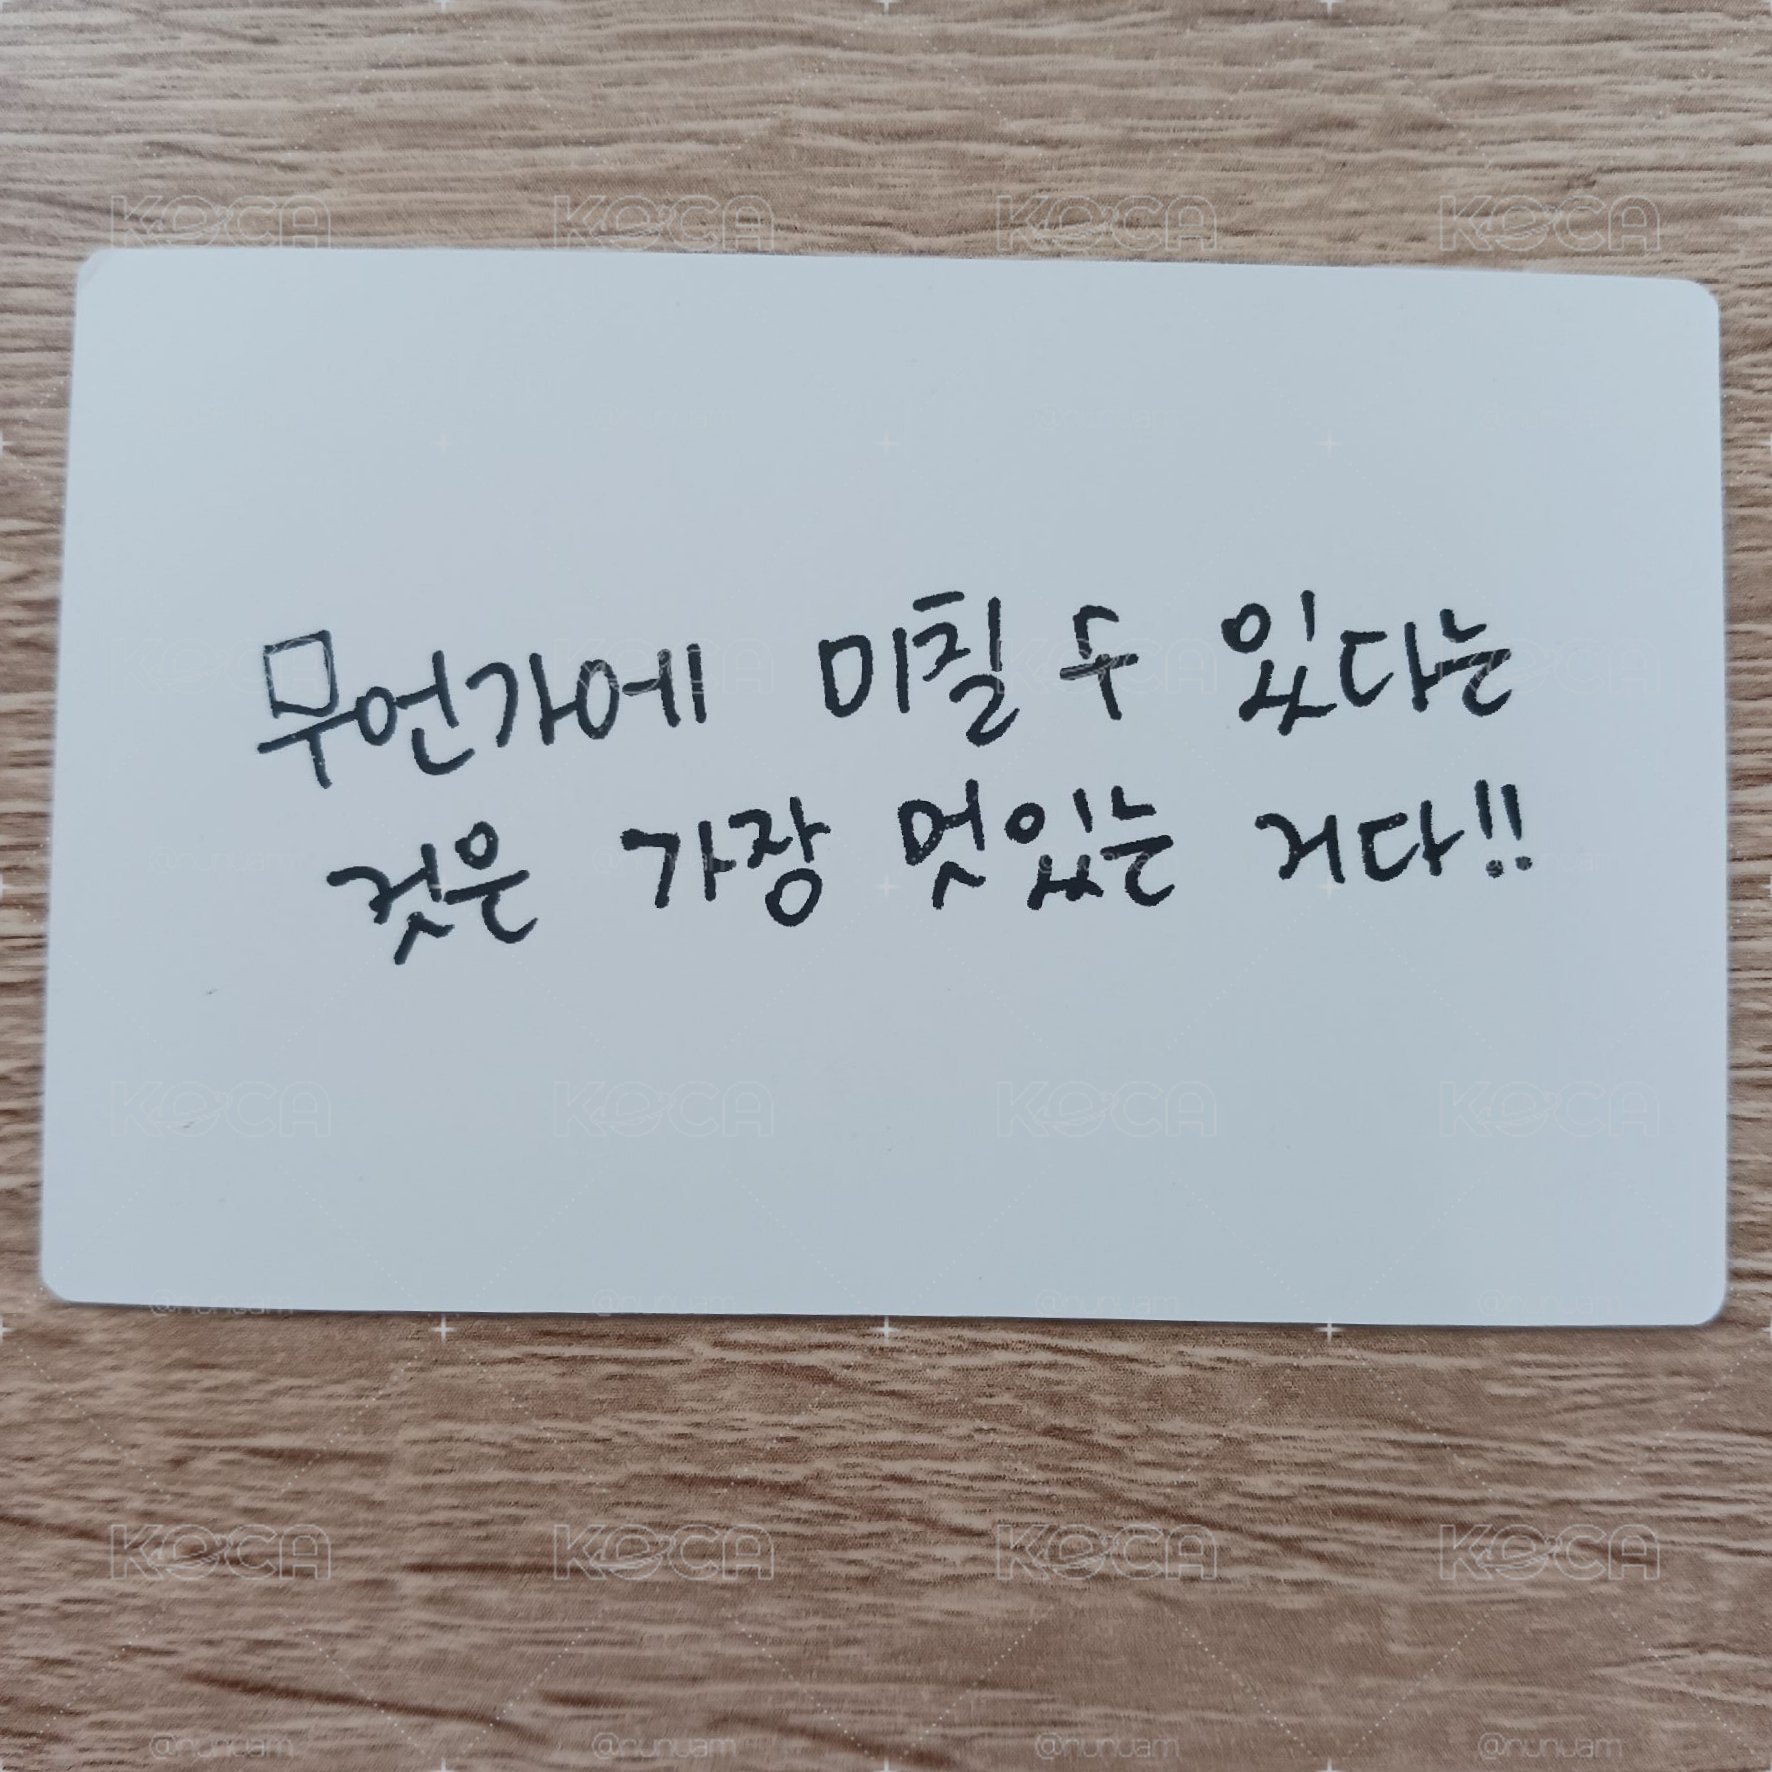 KOCA KOCA KOCA KOCA
@nunuam @nunuam
무언가에 미칠 수 있다는
것은 가장 멋있는 거다!!
KOCA KOCA KOCA KOCA
@nunuam @nunuam @nunuam @nunuam
KOCA KOCA KOCA KOCA
@nunuam @nunuam @nunuam @nunuam